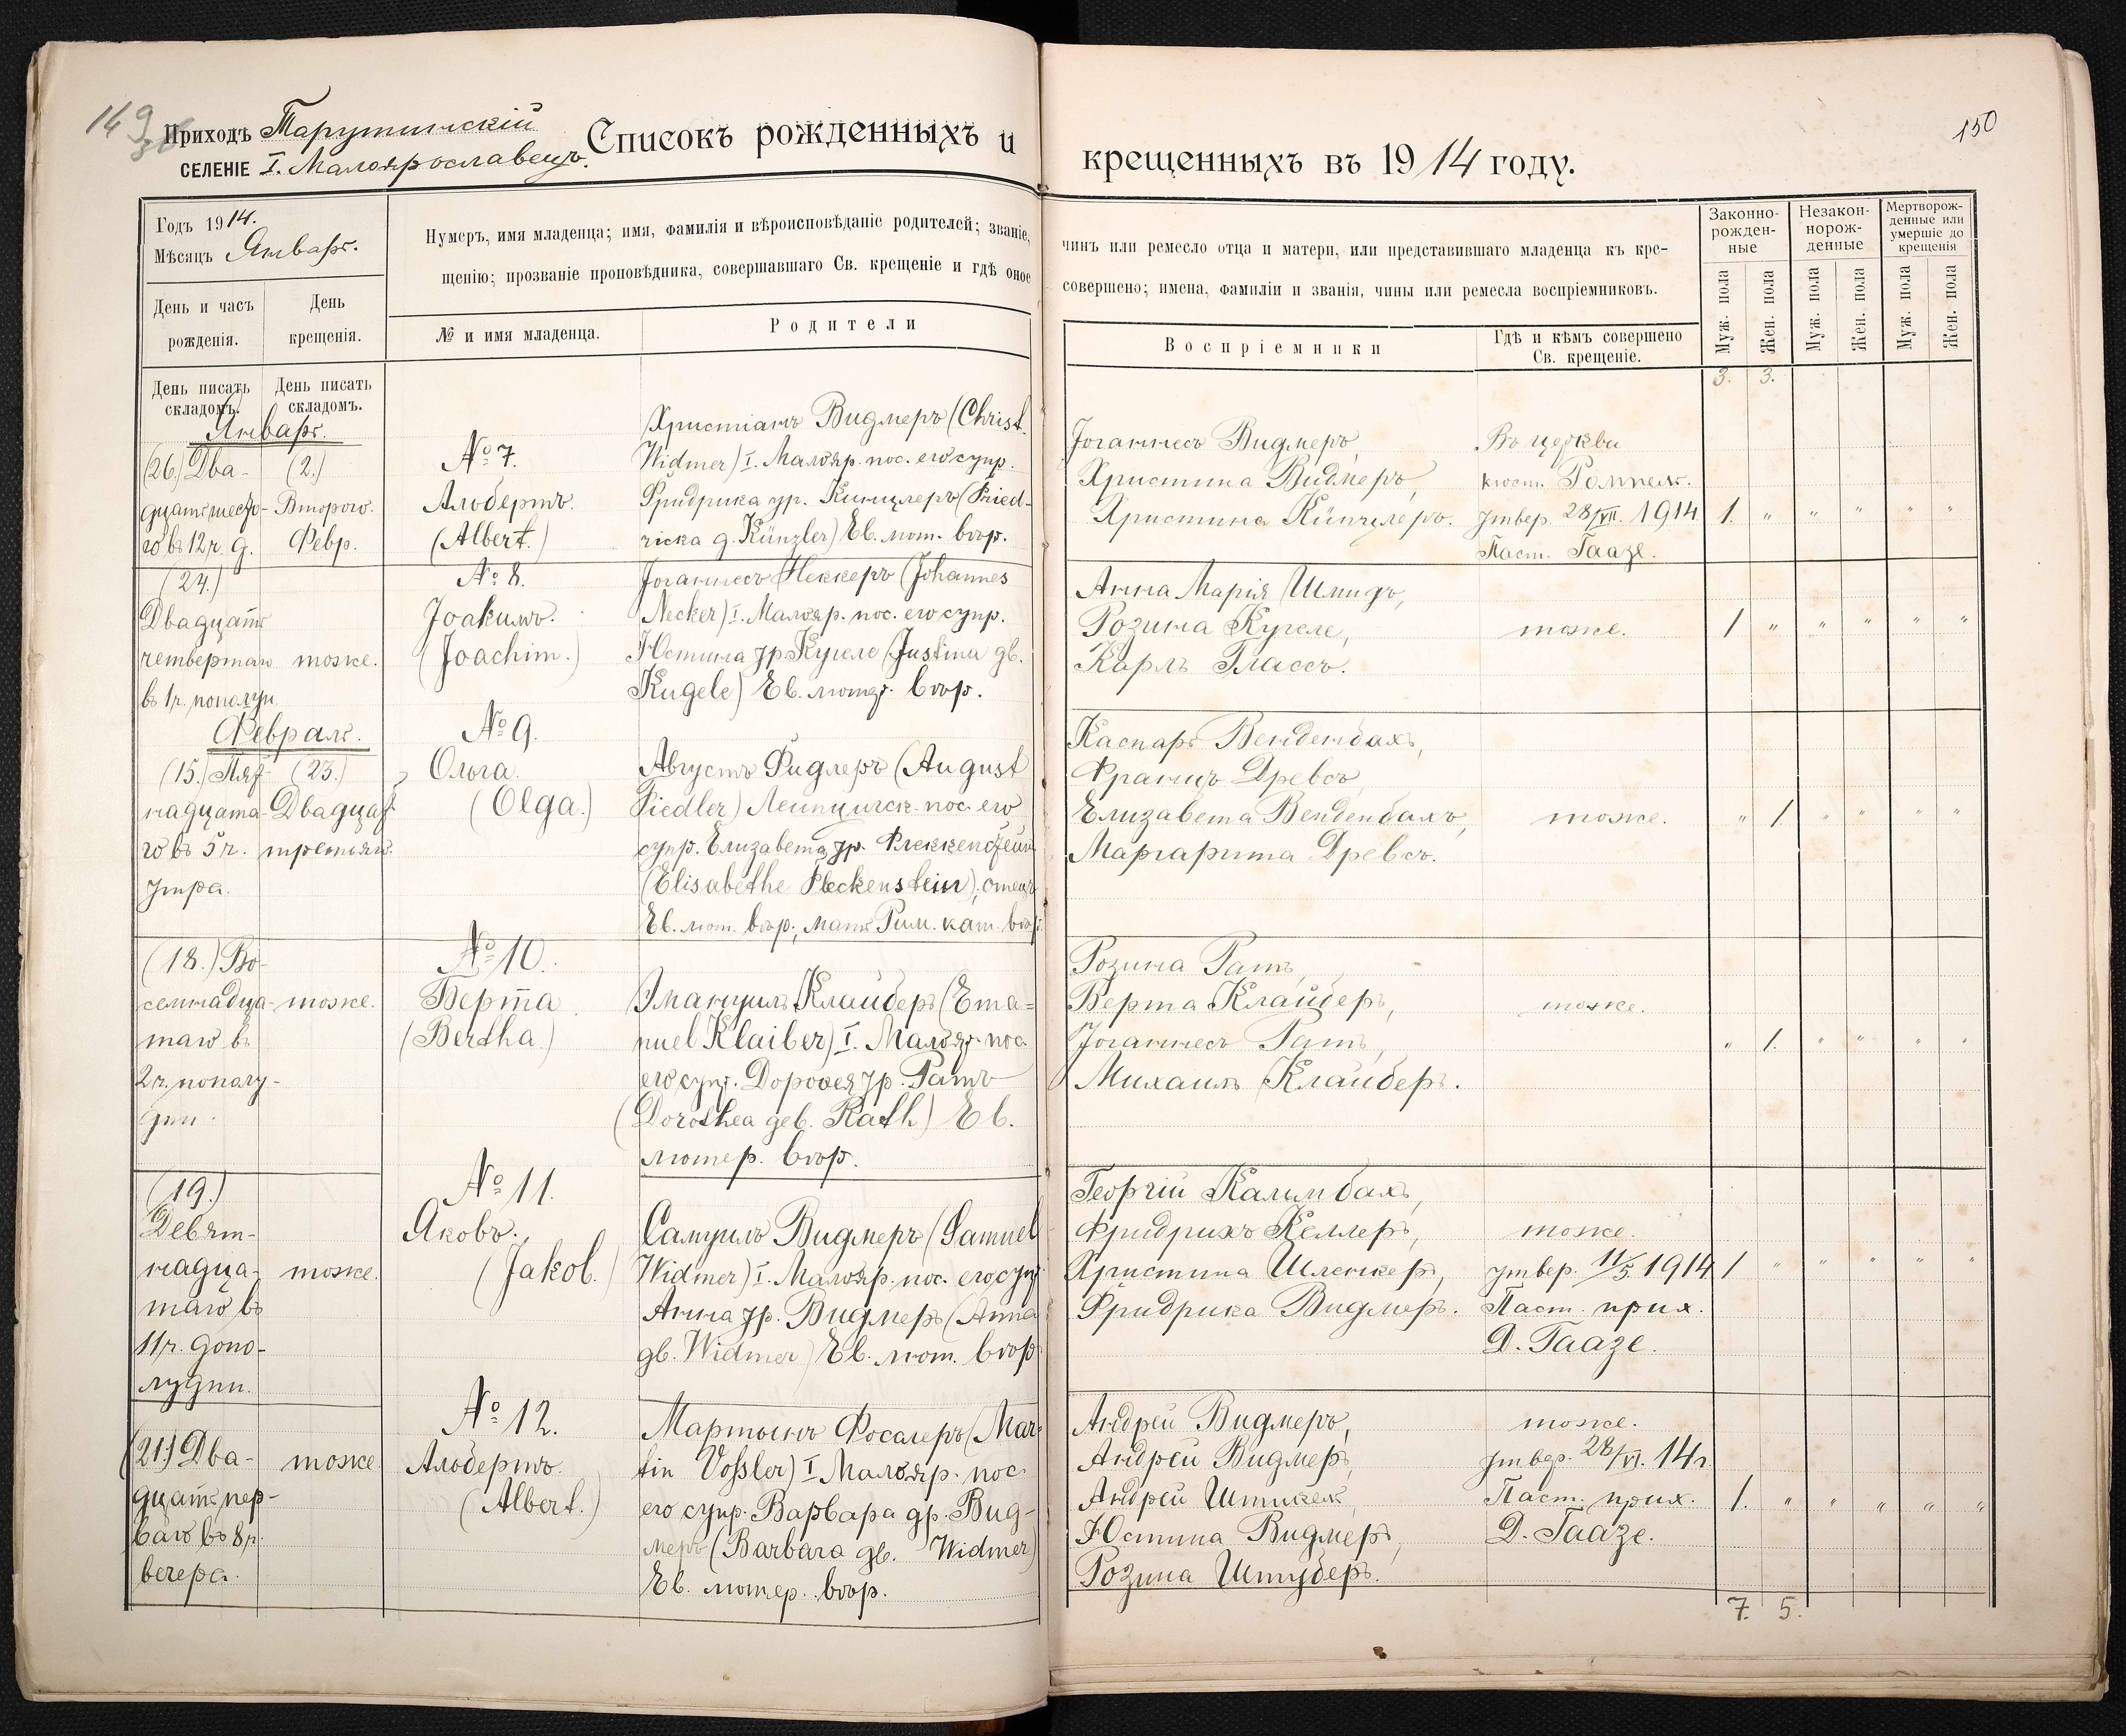 149
150
Приходъ Тарутинскій
СЕЛЕНІЕ I. Малоярославецъ.
Списокъ рожденныхъ и крещенныхъ въ 1914 году.
Годъ 1914.
Мѣсяцъ Январь.
Нумеръ, имя младенца; имя, фамилія и вѣроисповѣданіе родителей; званіе, чинъ или ремесло отца и матери, или представившаго младенца къ кре-
щенію; прозваніе проповѣдника, совершавшаго Св. крещеніе и гдѣ оное совершено; имена, фамиліи и званія, чины или ремесла воспріемниковъ.
Законно-
рожден-
ные
Незакон-
норож-
денные
Мертворож-
денные или
умершіе до
крещенія
День и часъ
рожденія.
День
крещенія.
№ и имя младенца.
Родители
Воспріемники
Гдѣ и кѣмъ совершено
Св. крещеніе.
Муж. пола
Жен. пола
Муж. пола
Жен. пола
Муж. пола
Жен. пола
День писать
складомъ.
День писать
складомъ.
3. 3.
Январь.
(26.) Два-
дцать шесто-
го въ 12 ч. д.
(2.)
Второго.
Февр.
№ 7.
Альбертъ.
(Albert.)
Христіанъ Видмеръ (Christ.
Widmer) I. Малояр. пос. его супр.
Фридрика ур. Кинцлеръ (Fried-
ricka g. Künzler) Ев. лют. вѣр.
Іоганнесъ Видмеръ,
Христина Видмеръ,
Христина Кинцлеръ.
Въ церкви
кюст. Роппель.
утвер. 28/VII. 1914
Паст. Гаазе.
1. " " " " "
(24.)
Двадцать
четвертаго
въ 1 ч. пополун.
тоже.
№ 8.
Іоакимъ.
(Joachim.)
Іоганнесъ Неккеръ (Johannes
Necker) I. Малояр. пос. его супр.
Юстина ур. Кугеле (Justina gb.
Kugele) Ев. лютер. вѣр.
Анна Марія Шмидъ,
Розина Кугеле,
Карлъ Глассъ.
тоже.
1 " " " " "
Февраль.
(15.) Пят-
надцата-
го въ 5 ч.
утра.
(23.)
Двадцат
третьяго.
№ 9.
Ольга.
(Olga.)
Августъ Фидлеръ (August
Fiedler) Лейпцигск. пос. его
супр. Елизавета ур. Флеккенштейнъ
(Elisabethe Fleckenstein); отецъ
Ев. лют. вѣр., мать Рим. кат. вѣр.
Каспаръ Венденбахъ,
Францъ Древсъ,
Елизавета Венденбахъ,
Маргарита Древсъ.
тоже.
" 1. " " " "
(18.) Во-
семнадца-
таго въ
2 ч. полу-
дни.
тоже.
№ 10.
Берта
(Bertha.)
Эмануилъ Клайберъ (Ema=
nuel Klaiber) I. Малояр. пос.
его супр. Доротея ур. Ратъ
(Dorothea geb. Rath) Ев.
лютер. вѣр.
Розина Ратъ,
Берта Клайберъ,
Іоганнесъ Ратъ,
Михаилъ Клайберъ.
тоже.
" 1. " " " "
(19.)
Девят-
надца-
таго въ
11 ч. допо-
лудни.
тоже.
№ 11.
Яковъ.
(Jakob.)
Самуилъ Видмеръ (Samuel
Widmer) I. Малояр. пос. его супр.
Анна ур. Видмеръ (Anna
gb. Widmer) Ев. лют. вѣр.
Георгій Калмбахъ,
Фридрихъ Келлеръ,
Христина Шленкеръ,
Фридрика Видмеръ.
тоже.
утвер. 11/5. 1914
Паст. прих.
Д. Гаазе.
1 " " " " "
(21.) Два-
дцать пер-
ваго въ 8 ч.
вечера.
тоже
№ 12.
Альбертъ.
(Albert.)
Мартынъ Фосслеръ (Mar-
tin Voßler) I Малояр. пос.
его супр. Варвара ур. Вид-
меръ (Barbara gb. Widmer)
Ев. лютер. вѣр.
Андрей Видмеръ,
Андрей Видмеръ,
Андрей Штикель,
Юстина Видмеръ,
Розина Штуберъ.
тоже.
утвер. 28/VI. 14 г.
Паст. прих.
Д. Гаазе.
1. " " " " "
7. 5.